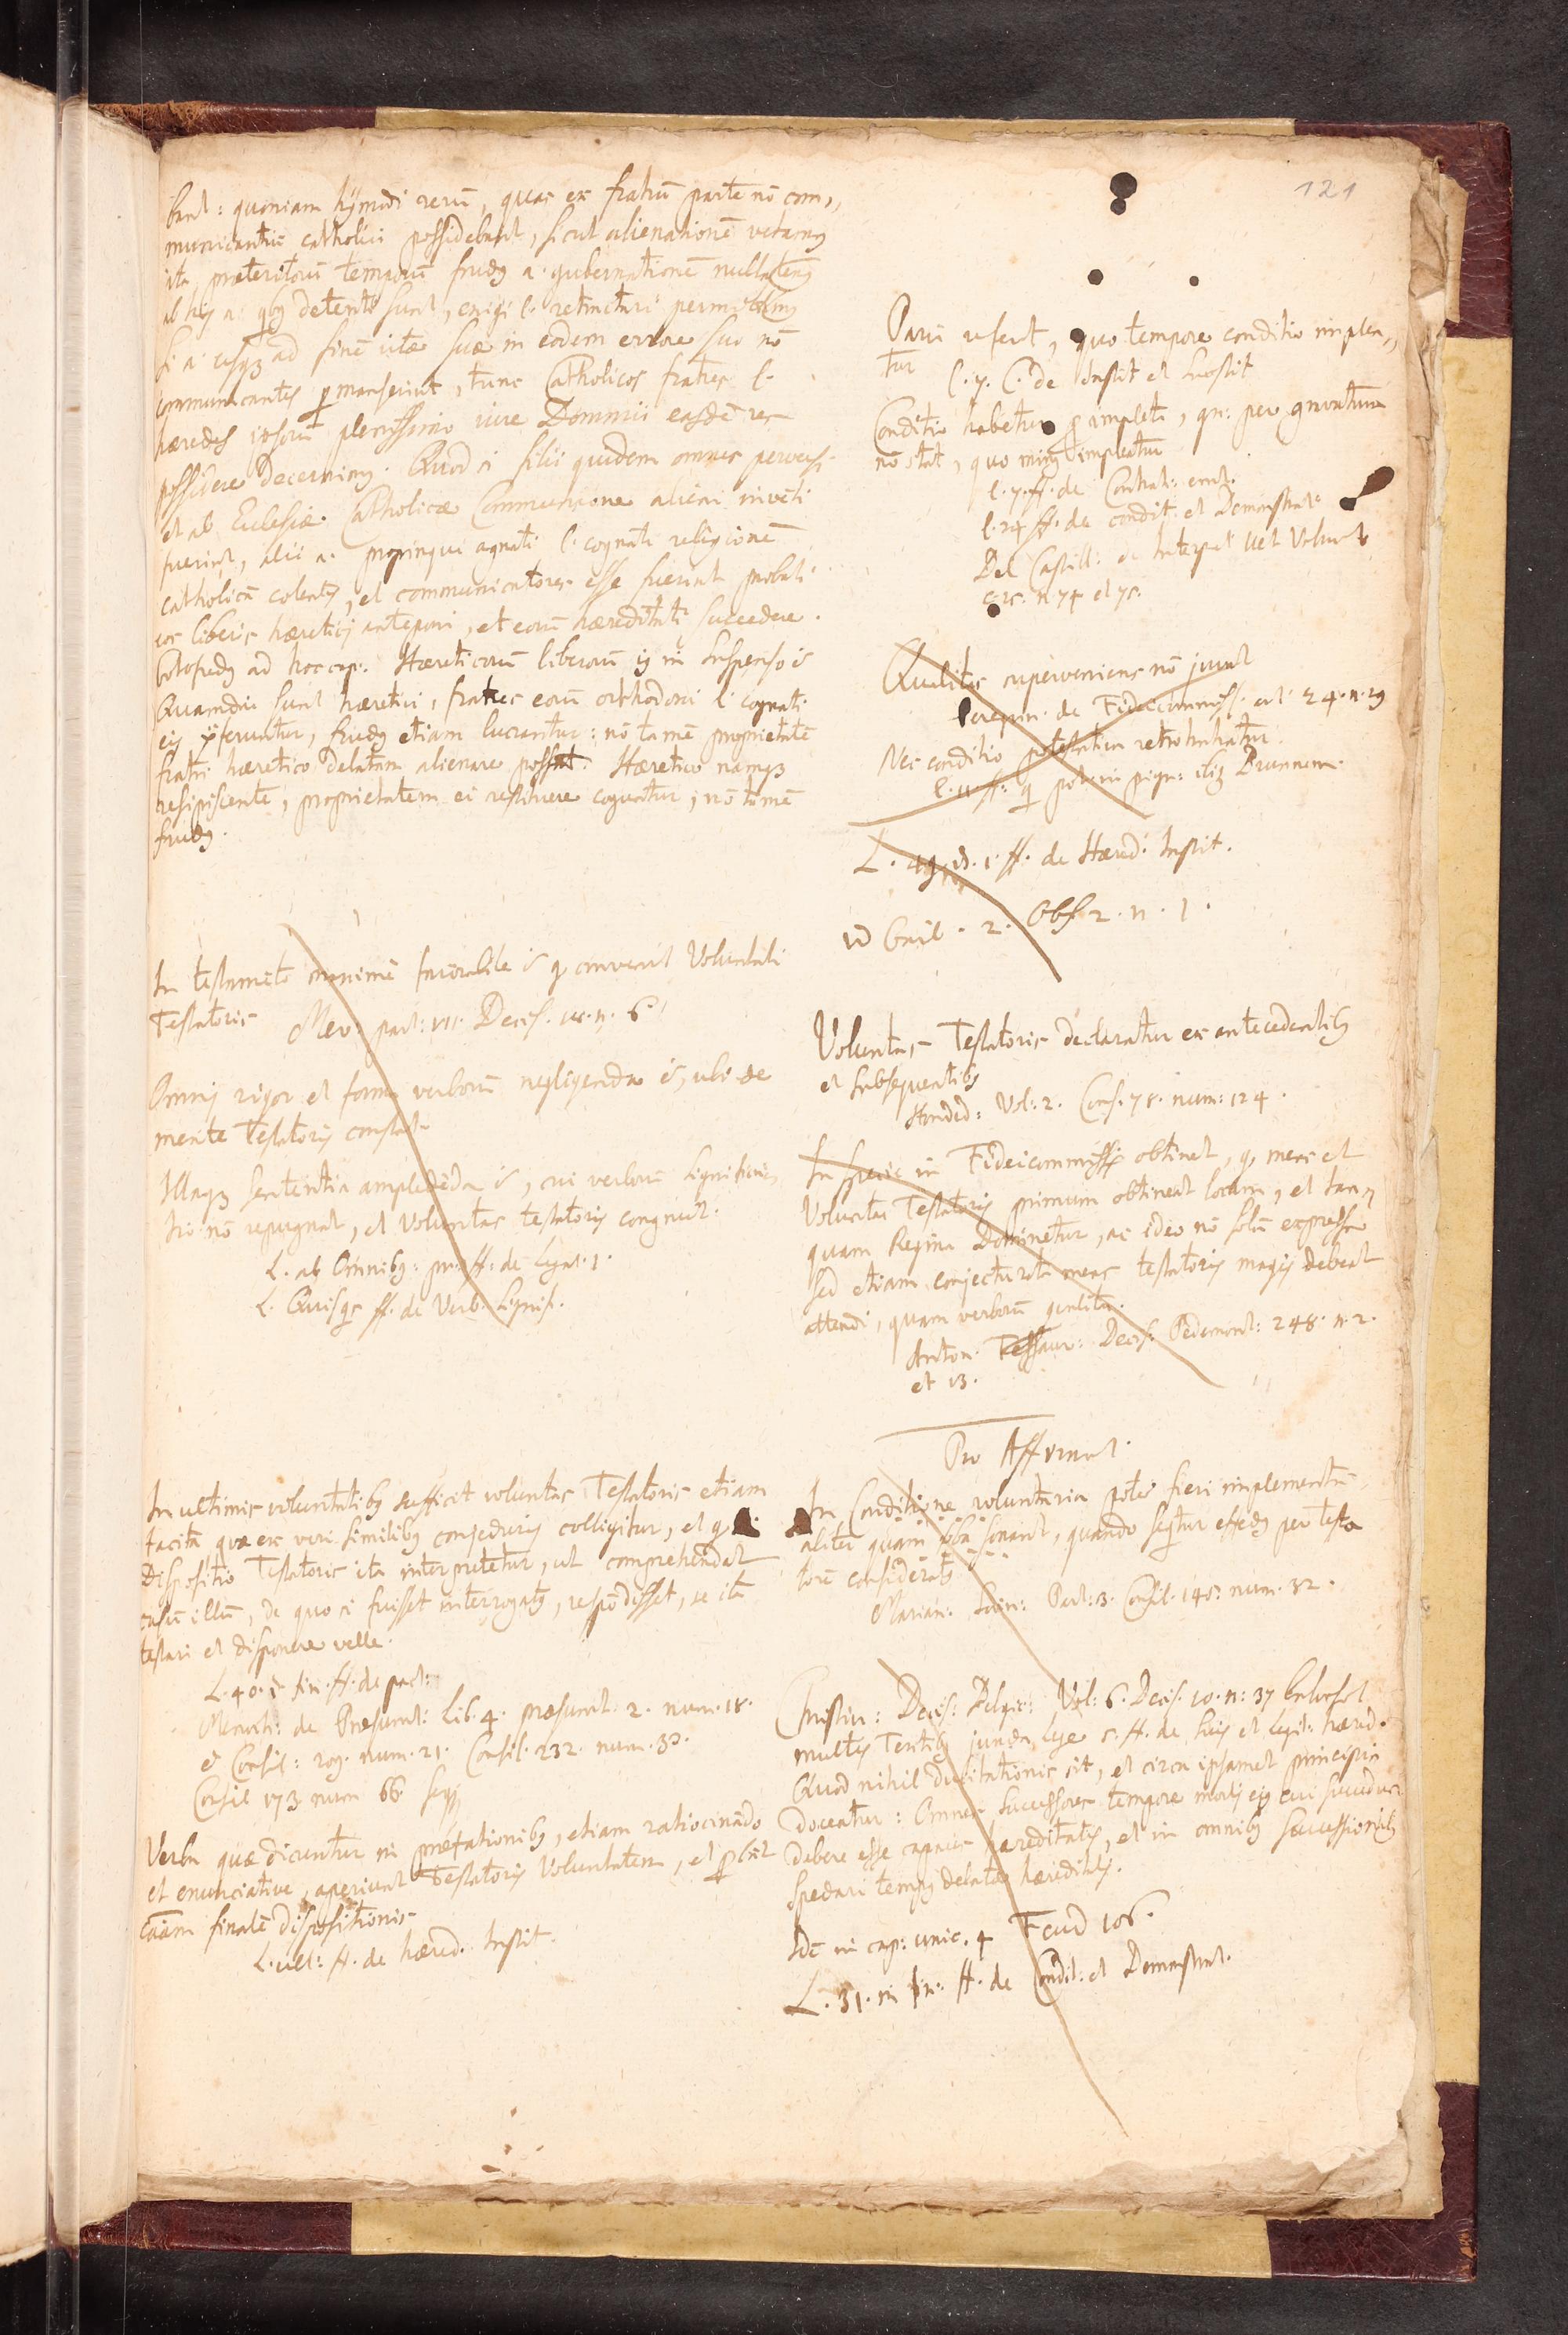 121
bant: quoniam hÿmodi rerū, quas ex fratrū parte nō com„
municantiū catholici possidebant, sicut alienationē vetamꝰ
ita præteritorū temporū fructꝰ a. gubernationē nullatenꝰ
ab hys a. qbꝰ detenti sunt, exigi l. retractari permittimꝰ
Si a. usqꝫ ad finē vitæ suæ in eodem errore suo nō
communicantes ꝑmanserint, tunc Catholicos fratres l.
hæredes ipsorū plenissimo iure Dominii easdē res
possidere decernimꝰ. Quod si filii quidem omnes perversi
et ab Ecclesiæ Catholicæ Communione alieni invēti
fuerint, alii a. propinqui agnati l. cognati religionē
catholicā colentes, et communicatores esse fuerint probati
eos liberis hæreticis anteponi, et eorū hæreditati succedere.
ad hoc cap: Hæreticorū liberorū in suspenso
Quamdiu sunt hæretici, fratres eorū orthodoxi l. cognati
eis feruntur, fructꝰ etiam lucrantur: nō tamē proprietatē
fratri hæretico delatam alienare possūt. Hæretico namqꝫ
resipiscente, proprietatem ei restituere coguntur, nō tamē
fructꝰ.
In testamēto maximē favorabile est qd convenit Voluntati
Testatoris Mev: part: VII. Decis. n. 6.
Omnis rigor et forma verborū negligenda est, ubi de
mente Testatoris constat.
Illaqꝫ sententia amplectēda est, cui verborū significa
tio nō repugnat, et Voluntas testatoris congruit.
L. ab Omnibꝰ: pr. ff. de Legat. 1.
L. Quisqs ff. de Verb. Signif.
In ultimis voluntatibꝰ sufficit voluntas Testatoris etiam
tacita quæ ex veri similibꝰ conjecturis colligitur, et
Dispositio Testatoris ita interpretetur, ut comprehendat
casū illū, de quo si fuisset interrogatꝰ, respōdisset, se ita
testari et disponere velle.
L. 40. § fin. ff. de pact:
Menoch: de Præsumt: Lib. 4. præsumt. 2. num. 18.
et Consil: 209. num. 21. Consil. 232. num. 32.
Consil 173. num 66. seqq
Verba quæ dicuntur in præfationibꝰ, etiam ratiocinādo
et enunciative, aperiunt Testatoris Voluntatem, et ꝓbāt
cāām finalē dispositionis
L. ult: ff. de hæred. Instit.
Parū refert, quo tempore conditio implea„
tur l. 7. C. de Instit et Substit
Conditio habetur ꝓ impleta, qn: per gravatum
nō stat, quo minꝰ impleatur
l. 7. ff. de Contrah: emt.
l. 24 ff. de condit. et Demonstrat:
Del Castill: de Interpret Ult Volunt
n. 74 et 75.
Qualitas superveniens nō juvat
Peregrin. de Fideicommiss. art. 24. n. 29
Nec conditio potestativa retrotrahatur.
l. 11 ff: q potiori pign: Brunnem.
L. 49. §. 1. ff. de Hæred. Instit.
vid Gail. 2. Obs 2. n. 1.
Voluntas Testatoris declaratur ex antecedentibꝰ
et subsequentibꝰ
Honded: Vol: 2. Cons. 78. num: 124.
In specie in Fideicommissis obtinet, qd mens et
Voluntas Testatoris primum obtineat locum, et tan„
quam Regina Dominetur, ac ideo nō solū expressa
sed etiam conjecturata mens testatoris magis debeat
attendi, quam verborū qualitas.
Anton. Tessaur: Decis: Pedemont: 248. n. 2.
et 13.
Pro Affirmat.
In Conditione voluntaria potest fieri implementū
aliter quam verba sonant, quando seqtur effectꝰ per testa
torē consideratꝰ
Marian: Socin: Part: 3. Consil. 140: num. 32.
Christin: Decis. Belgic: Vol: 6. Decis. 10. n: 37
multis Textibꝰ juncta lege 5. ff. de Suis et Legit: hæred.
Quod nihil dubitationis sit, et circa ipsamet principia
doceatur: Omnes successores tempore mortis ejꝰ cui succedunt
debere esse capaces hæreditatis, et in omnibꝰ successionibꝰ
Spectari tempꝰ delatæ hæreditatis.
Idē in cap: unic. 4 Feud 106.
L. 31. in pr: ff. de Condit: et Demonstrat.